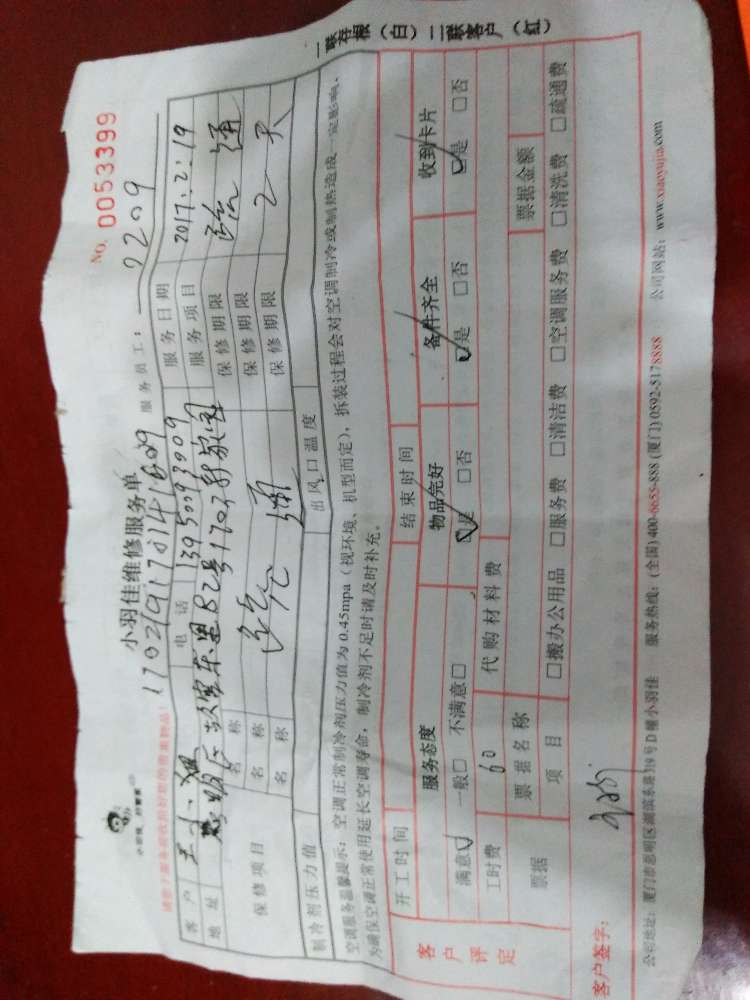 小羽佳 好管家
小羽佳维修服务单
NO. 0053399
17021917214
服务员工: 2209
客户 王小姐 电话 13950093009 服务日期 2017.2.19
地址 思明区 东里82号1702 服务项目 疏通
保修项目 名称 保修期限
名称 保修期限
名称 保修期限
制冷剂压力值 出风口温度
空调服务温馨提示:空调正常制冷剂压力值为0.45mpa(视环境、机型而定),拆装过程会对空调制冷或制热造成一定影响,
为确保空调正常使用延长空调寿命,制冷剂不足时请及时补充。
一联存根(白)二联客户(红)
客户评定
开工时间 结束时间
服务态度 物品完好 备件齐全 收到卡片
满意☑ 一般□ 不满意□ ☑是 □否 ☑是 □否 ☑是 □否
工时费 60 代购材料费
票据 票据名称 票据金额
项目 □搬办公用品 □服务费 □清洁费 □空调服务费 □清洗费 □疏通费
客户签字:
公司地址:厦门市思明区湖滨东路319号D幢小羽佳 服务热线:(全国)400-6655-888 (厦门)0592-5178888 公司网站:www.xiaoyujia.com